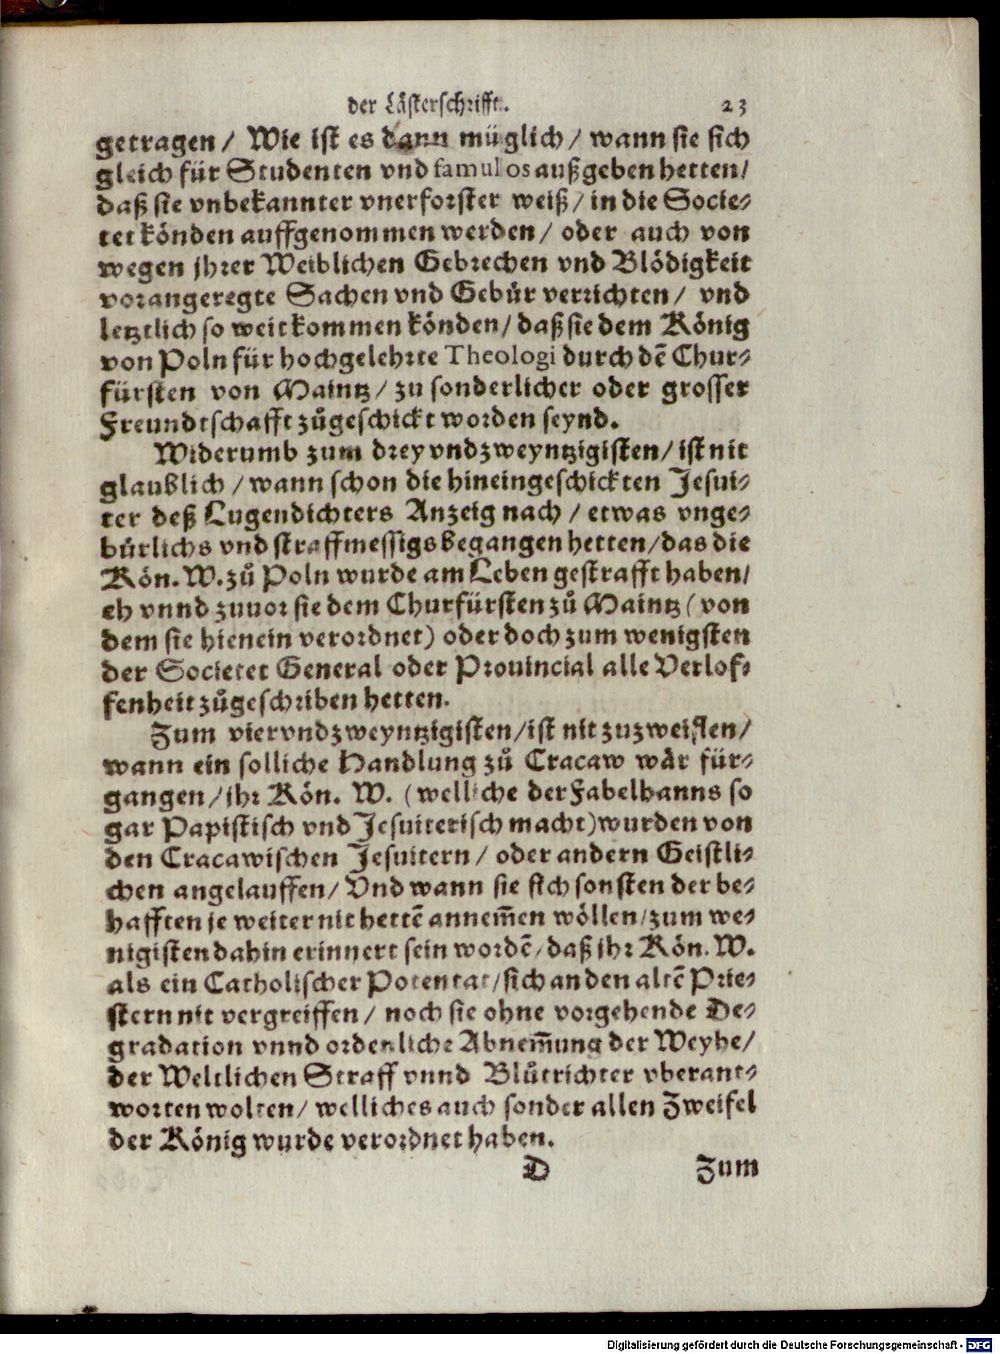 der Lästerschrifft. 23
getragen / Wie ist es dann müglich / wann sie sich
gleich für Studenten vnd famulos außgeben hetten /
daß sie vnbekannter vnerforster weiß / in die Socie-
tet könden auffgenommen werden / oder auch von
wegen jhrer Weiblichen Gebrechen vnd Blödigkeit
vorangeregte Sachen vnd Gebür verrichten / vnd
letztlich so weit kommen könden / daß sie dem König
von Poln für hochgelehrte Theologi durch dē Chur-
fürsten von Maintz / zu sonderlicher oder grosser
Freundtschafft zůgeschickt worden seynd.
Widerumb zum drey vnd zweyntzigisten / ist nit
glaublich / wann schon die hineingeschickten Jesui-
ter deß Lugendichters Anzeig nach / etwas vnge-
bürlichs vnd straffmessigs begangen hetten / das die
Kön. W. zů Poln wurde am Leben gestrafft haben /
eh vnnd zuuor sie dem Churfürsten zů Maintz (von
dem sie hienein verordnet) oder doch zum wenigsten
der Societet General oder Prouincial alle Verlof-
fenheit zůgeschriben hetten.
Zum viervndzweyntzigisten / ist nit zuzweiflen /
wann ein solliche Handlung zů Cracaw wär für-
gangen / jhr Kön. W. (welliche der Fabelhanns so
gar Papistisch vnd Jesuiterisch macht) wurden von
den Cracawischen Jesuitern / oder andern Geistli-
chen angelauffen / Vnd wann sie sich sonsten der be-
hafften je weiter nit hettē annem̄en wöllen / zum we-
nigisten dahin erinnert sein wordē / daß jhr Kön. W.
als ein Catholischer Potentat / sich an den altē Prie-
stern nit vergreiffen / noch sie ohne vorgehende De-
gradation vnnd ordenliche Abnem̄ung der Weyhe /
der Weltlichen Straff vnnd Blůtrichter vberant-
worten wolten / welliches auch sonder allen Zweifel
der König wurde verordnet haben.
D Zum
Digitalisierung gefördert durch die Deutsche Forschungsgemeinschaft - DFG